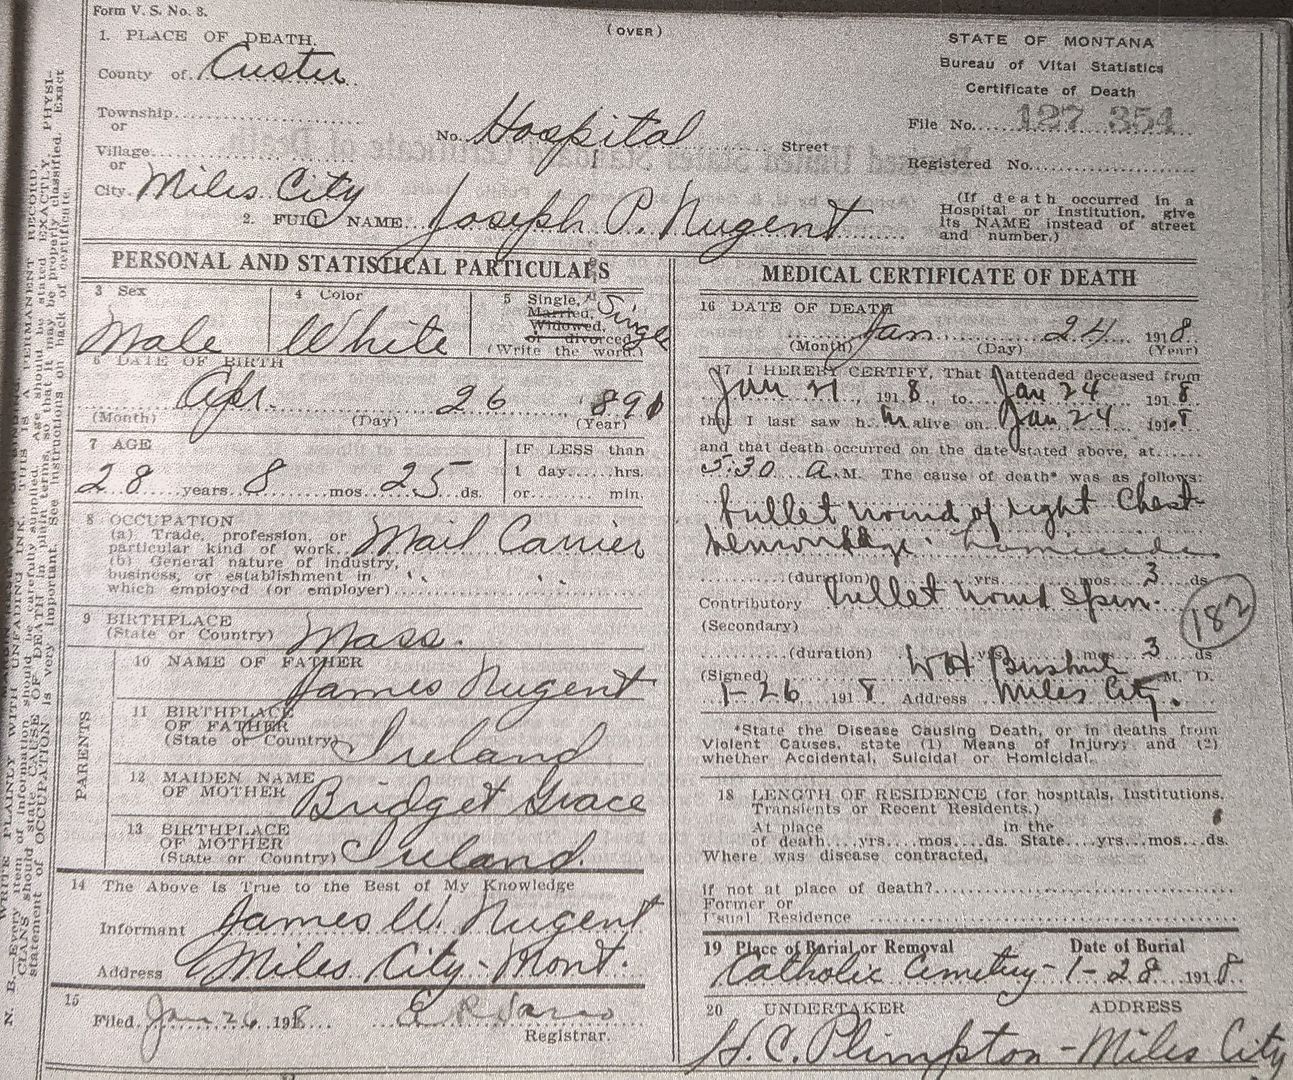 Form V. S. No. 8.
(OVER)
1. PLACE OF DEATH
County of Custer
Township
or
Village
or
City Miles City
No. Hospital Street
STATE OF MONTANA
Bureau of Vital Statistics
Certificate of Death
File No. 127 354
Registered No.
(If death occurred in a
Hospital or Institution, give
its NAME instead of street
and number.)
2. FULL NAME Joseph P. Nugent
PERSONAL AND STATISTICAL PARTICULARS
3 Sex
Male
4 Color
White
5 Single,
Married,
Widowed,
or divorced
(Write the word.)
Single
6 DATE OF BIRTH
Apr. 26
(Month) (Day) (Year)
7 AGE
28 years 8 mos. 25 ds.
IF LESS than
1 day......hrs.
or......min.
8 OCCUPATION
(a) Trade, profession, or
particular kind of work Mail Carrier
(b) General nature of industry,
business, or establishment in
which employed (or employer) " "
9 BIRTHPLACE
(State or Country) Mass.
PARENTS
10 NAME OF FATHER
James Nugent
11 BIRTHPLACE
OF FATHER
(State or Country) Ireland
12 MAIDEN NAME
OF MOTHER Bridget Grace
13 BIRTHPLACE
OF MOTHER
(State or Country) Ireland.
14 The Above Is True to the Best of My Knowledge
Informant James W. Nugent
Address Miles City - Mont.
15
Filed Jan 26 1918
Registrar.
MEDICAL CERTIFICATE OF DEATH
16 DATE OF DEATH
Jan 24 1918
(Month) (Day) (Year)
17 I HEREBY CERTIFY, That I attended deceased from
Jan 21, 1918, to Jan 24 1918
that I last saw him alive on Jan 24 1918
and that death occurred on the date stated above, at
5:30 A.M. The cause of death* was as follows:
bullet wound of right chest
hemorrhage. homicide
(duration) yrs. mos. 3 ds.
Contributory bullet wound spine.
(Secondary)
182
(duration) yrs. mos. 3 ds
(Signed) W H M. D.
1-26 1918 Address Miles City.
*State the Disease Causing Death, or in deaths from
Violent Causes, state (1) Means of Injury; and (2)
whether Accidental, Suicidal or Homicidal.
18 LENGTH OF RESIDENCE (for hospitals, Institutions,
Transients or Recent Residents.)
At place in the
of death....yrs....mos....ds. State....yrs....mos....ds.
Where was disease contracted,
if not at place of death?
Former or
Usual Residence
19 Place of Burial or Removal Date of Burial
Catholic Cemetery - 1-28 1918
20 UNDERTAKER ADDRESS
H. C. Plimpton - Miles City
N. B.—Every item of information should be carefully supplied. Age should be stated EXACTLY. PHYSI-
CIANS should state CAUSE OF DEATH in plain terms, so that it may be properly classified. Exact
statement of OCCUPATION is very important. See instructions on back of certificate.